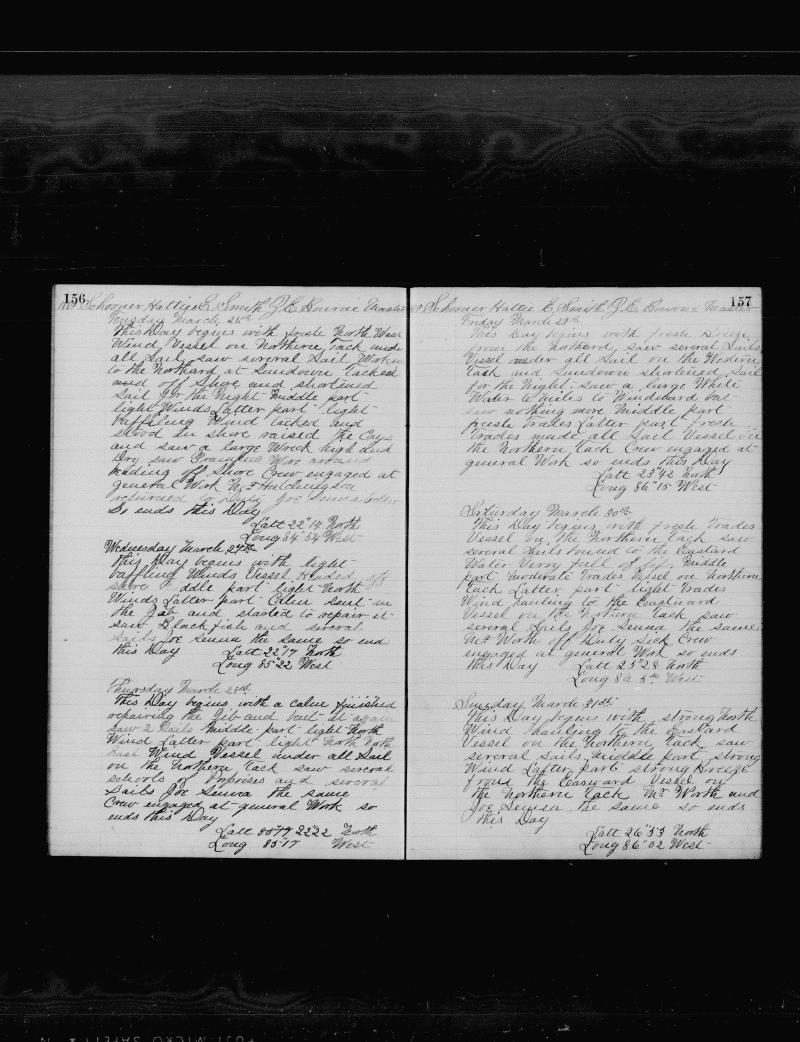 156
Schooner Hattie E. Smith J. E. Bourne Master
Tuesday March 26th
This Day begins with fresh North West
Wind Vessel on Northern Tack under
all Sail saw several Sail Working
to the Northard at Sundown Tacked
and off Shore and shortened
Sail for the Night Middle part
light Winds Latter part light
baffling Wind tacked and
stood in shore raised the Cay
and saw a large Wreck high and
Dry saw
heading off Shore Crew engaged at
general Work Mr Hutchingson
returned to Duty Joe Senna
So ends this Day
Latt 22"14 North
Long 84"54 West
Wednesday March 27th
This Day begins with light
baffling Winds Vessel Headed off
shore ddle part light North
Winds Latter part Calm sent in
the Jib and started to repair it
saw Black fish and several
sails Joe Senna the same so end
this Day Latt 22"17 North
Long 85"22 West
Thursday March 28th
This Day begins with a calm finished
repairing the Jib and bent it again
saw 2 Sails Middle part light North
Wind Latter part light North North
East Wind Vessel under all Sail
on the Northern tack saw several
schools of Porpoises and several
Sails Joe Senna the same
Crew engaged at general Work so
ends this Day
Latt 22"22 North
Long 85"17 West
157
Schooner Hattie E. Smith J. E. Bourne Master
Friday March 29th
This Day begins with fresh Breeze
from the Northard, saw several Sails
Vessel under all Sail on the
Tack and Sundown shortened Sail
for the Night saw a large White
Water 2 Miles to Windward but
saw nothing more Middle part
fresh Trades Latter part fresh
Trades made all Sail Vessel on
the Northern Tack Crew engaged at
general Work so ends this Day
Latt 23"42 North
Long 86"15 West
Saturday March 30th
This Day begins with fresh Trades
Vessel on the Northern tack saw
several Sails bound to the Eastard
Water Verry full of Middle
part moderate Trades Vessel on Northern
tack Latter part light Trades
Wind hauling to the Eastward
Vessel on the Northern tack saw
several Sails Joe Senna the same
Mr Worth off Duty Sick Crew
engaged at general Work so ends
this Day Latt 25"28 North
Long 86 West
Sunday March 31st
This Day begins with strong North
Wind hauling to the Eastard
Vessel on the Northern tack saw
several sails Middle part strong
Wind Latter part strong Breeze
from the Eastward Vessel on
the Northern tack Mr Worth and
Joe Senna the same so ends
this Day
Latt 26"53 North
Long 86"02 West